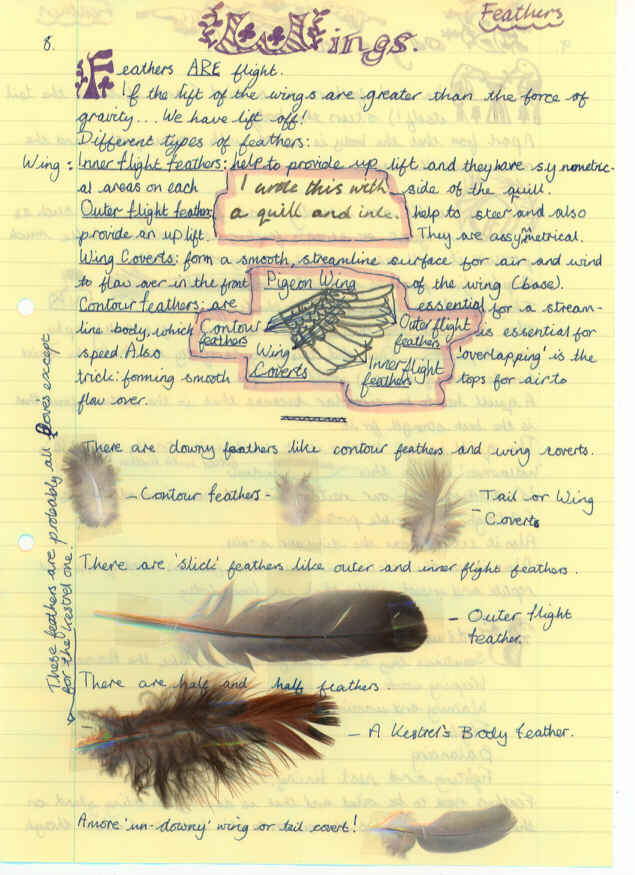 Feathers
8.
Wings.
Feathers ARE flight.
If the lift of the wings are greater than the force of
gravity... We have lift off!
Different types of feathers:
Wing: Inner flight feathers: help to provide up lift and they have symmetric-
al areas on each side of the quill.
I wrote this with
a quill and ink.
Outer flight feathers help to steer and also
provide an up lift. They are assymmetrical.
Wing Coverts: form a smooth, streamline surface for air and wind
to flow over in the front of the wing (base).
Pigeon Wing
Contour feathers
Wing Coverts
Outer flight feathers
Inner flight feathers
Contour feathers: are essential for a stream-
line body, which is essential for
speed. Also 'overlapping' is the
trick: forming smooth tops for air to
flow over.
There are downy feathers like contour feathers and wing coverts.
- Contour feathers -
- Tail or Wing
Coverts
There are 'slick' feathers like outer and inner flight feathers.
- Outer flight
feather.
There are half and half feathers.
- A Kestrel's Body feather.
A more 'un-downy' wing or tail covert!
These feathers are probably all Doves except
for the kestrel one.